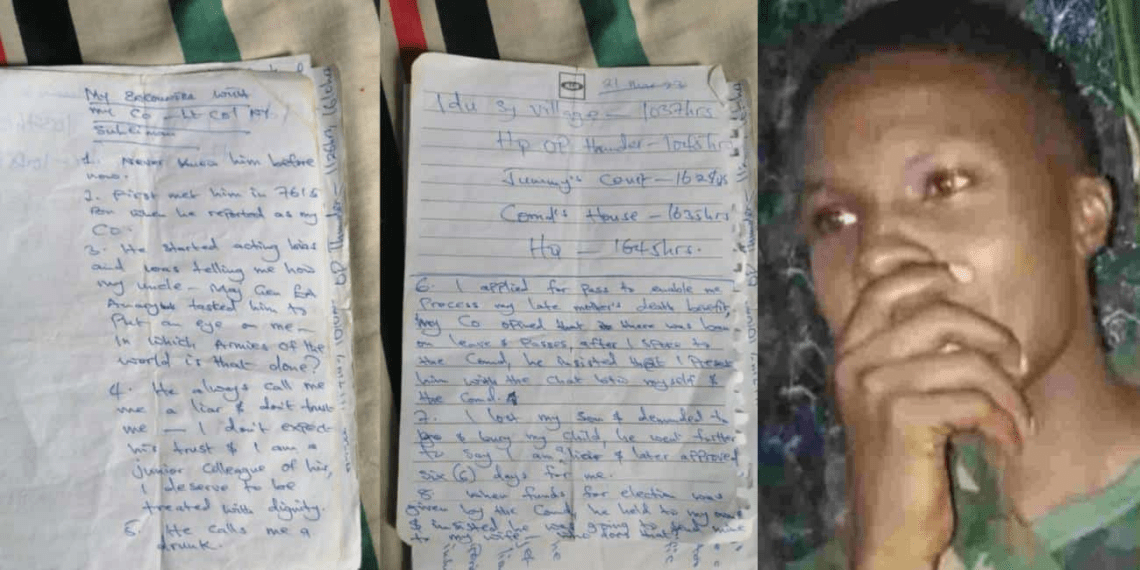 My Encounter with
my CO - Lt Col NY
Suleiman
1. Never knew him before
now.
2. First met him in 7615
Bn when he reported as my
CO.
3. He started acting bias
and was telling me how
my uncle - Maj Gen EA
tasked him to
Put an eye on me -
In which Armies of the
world is that done?
4. He always call me
me a liar & don't trust
me - I don't expect
his trust & I am a
Junior Colleague of his,
I deserve to be
treated with dignity.
5. He calls me a
drunk.
21
Idu Sy village - 1037hrs
Hq OP thunder - 1045hr
Jummy's Court - 1628hrs
Comd's House - 1635hrs
Hq - 1645hrs.
6. I applied for pass to enable me
Process my late mother's death benefit,
my CO opined that there was ban
on leave & Passes, after I spoke to
the Comd, he insisted that I Present
him with the Chat btw myself &
the Comd.
7. I lost my Son & demanded to
go & bury my child, he went further
to say I am a liar & later approved
six (6) days for me.
8. When funds for election was
given by the Comd, he held to my own
& insisted he was going to send mine
to my wife - who does that?